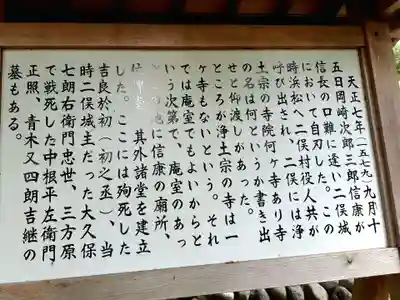 天正七年(一五七九)九月十
五日岡崎次郎三郎信康が
信長の口難に逢い二俣城
において自刃した。この
時浜松へ二俣村役人共が
呼び出され、二俣には浄
土宗の寺院何ヶ寺あり寺
の名は何というか書き出
せと仰渡しがあった。
ところが浄土宗の寺は一
ヶ寺もないという。それ
では庵室でもよいからと
いう次第で、庵室のあっ
の地に信康の廟所、
其外諸堂を建立
した。ここには殉死した
吉良於初(初之丞)、当
時二俣城主だった大久保
七郎右衛門忠世、三方原
で戦死した中根平左衛門
正照、青木又四朗吉継の
墓もある。